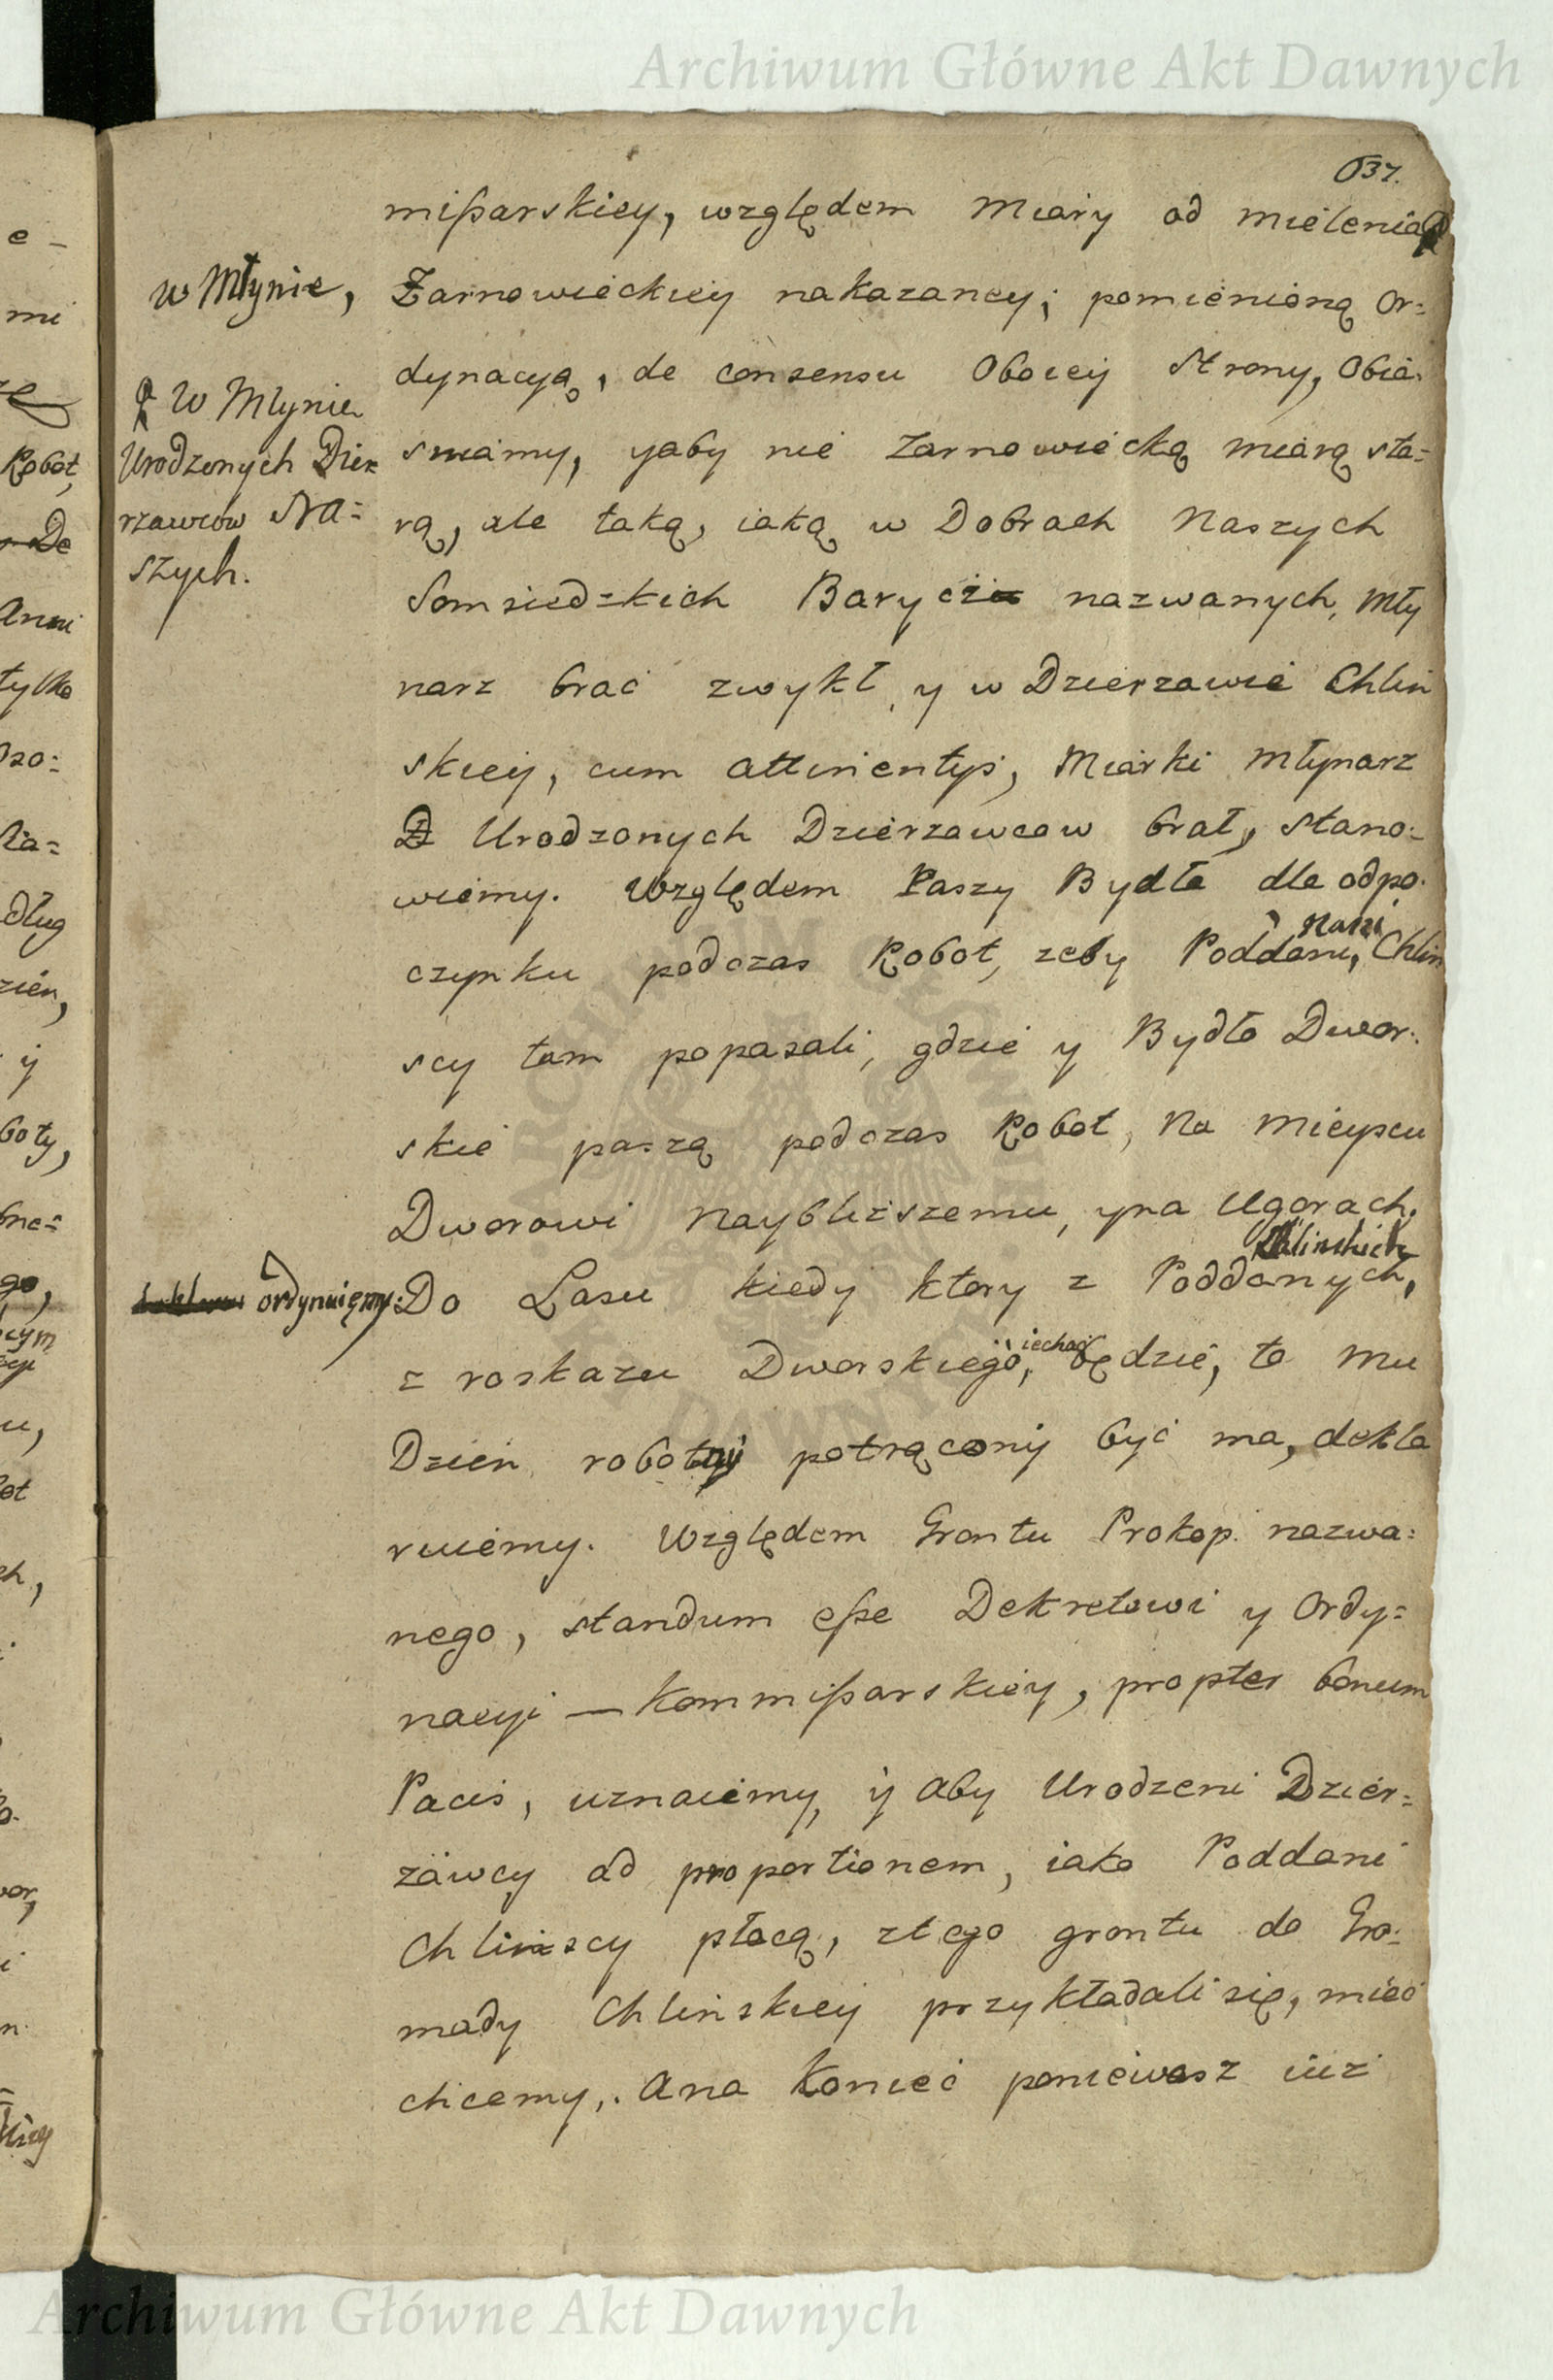 Archiwum Główne Akt Dawnych
637.
mißarskiey, względem Miary od mielenia
w Młynie,
Żarnowieckiey nakazaney; pomienioną Or=
dynacyą, de consensu Oboiey Strony, Obia=
W Młynie
Urodzonych Dzier
rzawcow Na=
szych.
sniamy, yaby nie Żarnowiecką miarą sta=
rą, ale taką, iaką w Dobrach Naszych
Somsiedzkich Barycz nazwanych, Mły
narz brać zwykł, y w Dzierzawie Chlin
skiey, cum attinentys, Miarki Młynarz
Z Urodzonych Dzierzawcow brał, stano=
wiemy. Względem Paszy Bydła dla odpo=
czynku podczas Robot, zeby Poddani, Nasi Chlin
scy tam popasali, gdzie y Bydło Dwor=
skie paszą podczas Robot, Na mieyscu
Dworowi Naybliższemu, yna Ugorach,
ordynuięmy:
Do Lasu kiedy ktory z Poddanych, Chlinskich
z roskazu Dworskiego, iechać będzie, to mu
Dzien robotny potrącony być ma, dekla
ruiemy. Względem Grontu Prokop. nazwa=
nego, standum eße Dekretowi y Ordy=
nacyi — Kommißarskiey, propter bonum
Pacis, uznaiemy, y aby Urodzeni Dzier=
żawcy ad proportionem, iako Poddani
Chlinscy płacą, ztego grontu do Gro=
mady Chlinskiey przykładali się, mieć
chcemy,. Ana Koniec poniewasz iuż
Archiwum Główne Akt Dawnych